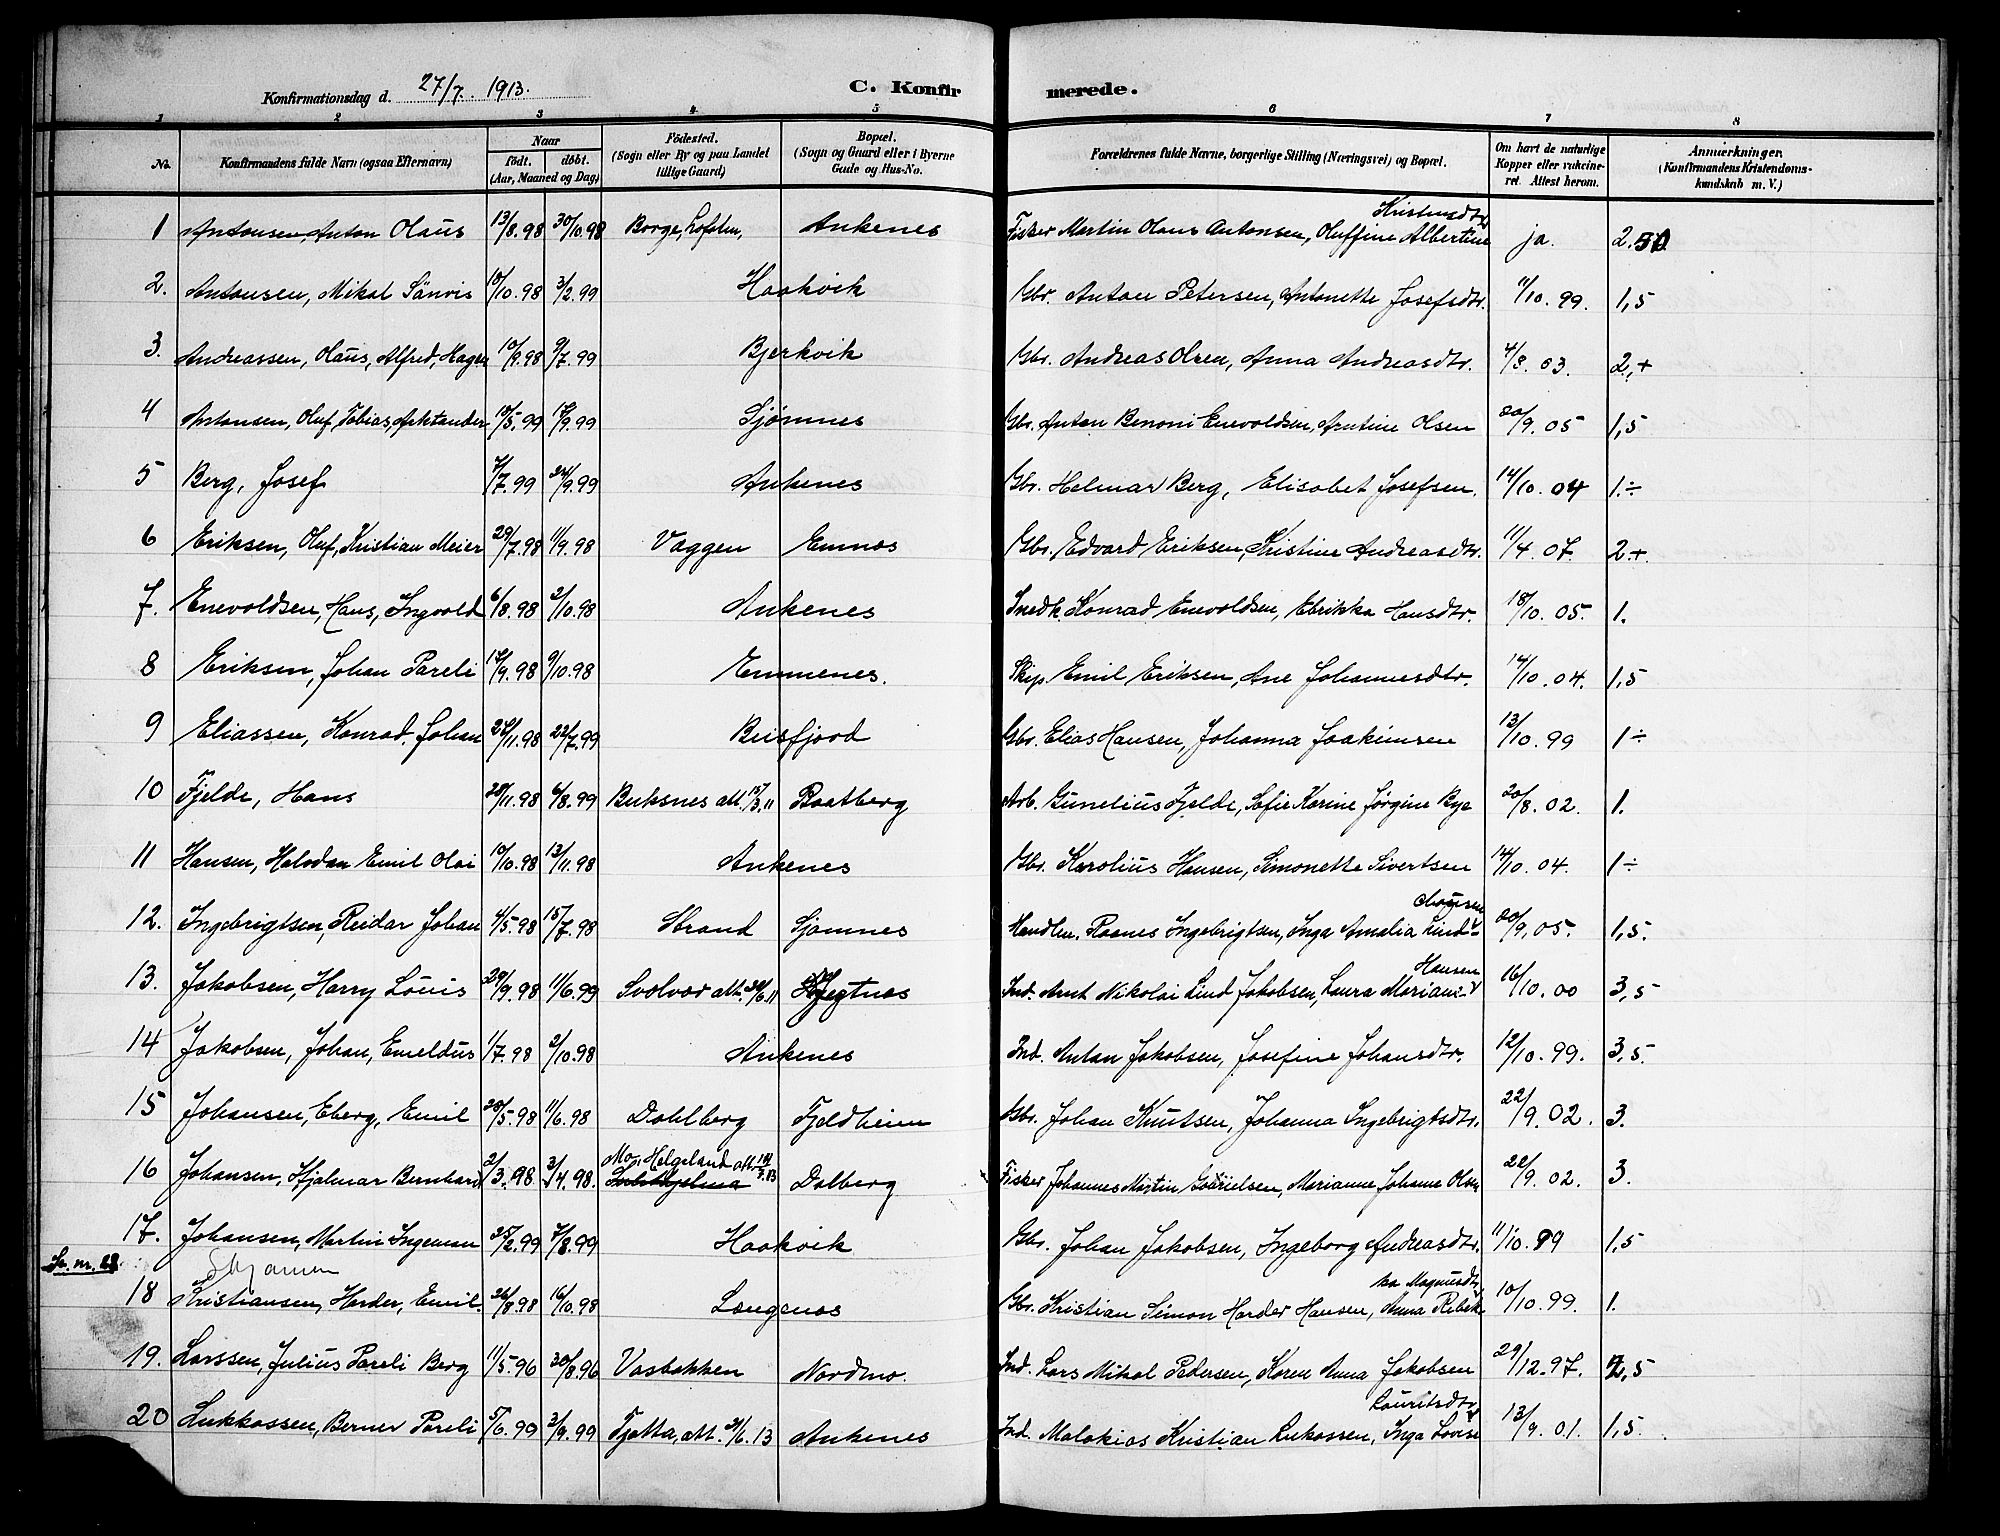 Konfirmationsdag d. 27/7. 1913. C. Konfirmerede.
1 2 3 4 5 6 7 8
No. Konfirmandens fulde Navn (ogsaa Efternavn) Naar født. døbt. (Aar, Maaned og Dag) Fødested. (Sogn eller By og paa Landet tillige Gaard) Bopæl. (Sogn og Gaard eller i Byerne Gade og Hus-No. Forældrenes fulde Navne, borgerlige Stilling (Næringsvei) og Bopæl. Om havt de naturlige Kopper eller vakcineret. Attest herom. Anmærkninger (Konfirmandens Kristendomskundskab m. V.)
1 Antonsen, Anton Olaus 13/8.98 30/10.98 Borge, Lofoten, Ankenes Fisker Martin Olaus Antonsen, Oluffine Albertine Kristensdtr ja. 2.50
2. Antonsen, Mikal Sönvis 10/10.98 3/2.99 Haakvik Gbr. Anton Petersen, Antonette Josefsdtr. 11/10.99. 1,5
3. Andreassen, Olaus, Alfred, Hagen 10/9.98 9/7.99 Bjerkvik Gbr. Andreas Olsen, Anna Andreasdtr. 4/8.03. 2,+
4 Antonsen, Oluf, Tobias, Arktander 13/5.99 17/9.99 Sjømnes Gbr. Anton Benoni Enevoldsen, Arntine Olsen 20/9.05 1,5
5 Berg, Josef 7/7.99 24/9.99 Ankenes Gbr. Helmar Berg, Elisabet Josefsen. 14/10.04 1.÷
6 Eriksen, Oluf, Kristian Meier 29/7.98 11/9.98 Vaggen Emnes Gbr. Edvard Eriksen, Kristine Andreasdtr. 11/4.07. 2+.
7. Enevoldsen, Hans, Ingvold 6/8.98 2/10.98 Ankenes Snedk. Konrad Enevoldsen, Elrikka Hansdtr. 18/10.05. 1.
8 Eriksen, Johan Pareli 12/9.98 9/10.98 Emmenes. Skip. Emil Eriksen, Ane Johannesdtr. 14/10.04. 1,5
9 Eliassen, Konrad, Johan 24/11.98 22/7.99 Beisfjord Gbr. Elias Hansen, Johanna Joakimsen 13/10.99 1÷
10 Fjelde, Hans 28/11.98 6/8.99 Buksnes att. 15/3.11 Baatberg Arb. Gunelius Fjelde, Sofie Karine Jørgine Bye 20/8.02. 1.
11 Hansen, Halvdan Emil Olai 10/10.98 13/11.98 Ankenes Gbr. Karolius Hansen, Simonette Sivertsen 14/10.04. 1÷
12. Ingebrigtsen, Reidar Johan 4/5.98 15/7.98 Strand Sjømnes Handlm. Raanes Ingebrigtsen, Inga Amalia Lind 20/9.05. 1,5.
13. Jakobsen, Harry Louis 29/9.98 11/6.99 Svolvær att. 24/6.11 Jegtnes Ind. Arnt Nikolai Lind Jakobsen, Laura Mariane Hansen 16/10.00 3,5
14 Jakobsen, Johan, Emeldus 1/7.98 2/10.98 Ankenes Ind. Anton Jakobsen, Josefine Johansdtr. 12/10.99. 3,5.
15 Johansen, Eberg, Emil 28/5.98 11/6.98 Dahlberg Fjeldheim Gbr. Johan Knutsen, Johanna Ingebrigtsdtr. 22/9.02. 3.
16 Johansen, Hjalmar Bernhard 2/3.98 3/4.98. Mo, Helgeland att. 14/3.13 Dalberg Fisker Johannes Martin Gabrielsen, Marianne Johanne Olsen 22/9.02. 3.
17. Johansen, Martin Ingeman 25/2.99 7/8.99 Haakvik Gbr. Johan Jakobsen, Ingeborg Andreasdtr. 11/10.99 1,5
Se. nr. 28.
18 Kristiansen, Harder, Emil. 26/8.98 16/10.98 Langenes Gbr. Kristian Simon Harder Hansen, Anna Rebekka Magnusdtr 10/10.99. 1.
19. Larssen, Julius Pareli Berg 11/5.96 30/8.96 Vasbakken Nordmo. Ind. Lars Mikal Pedersen, Karen Anna Jakobsen 29/12.97. 2,5
20 Lukkassen, Berner Pareli 5/6.99 3/9.99 Tjøtta, att. 21/6.13 Ankenes Ind. Malakias Kristian Lukassen, Inga Lovise Lauritsdtr 13/9.01. 1,5.